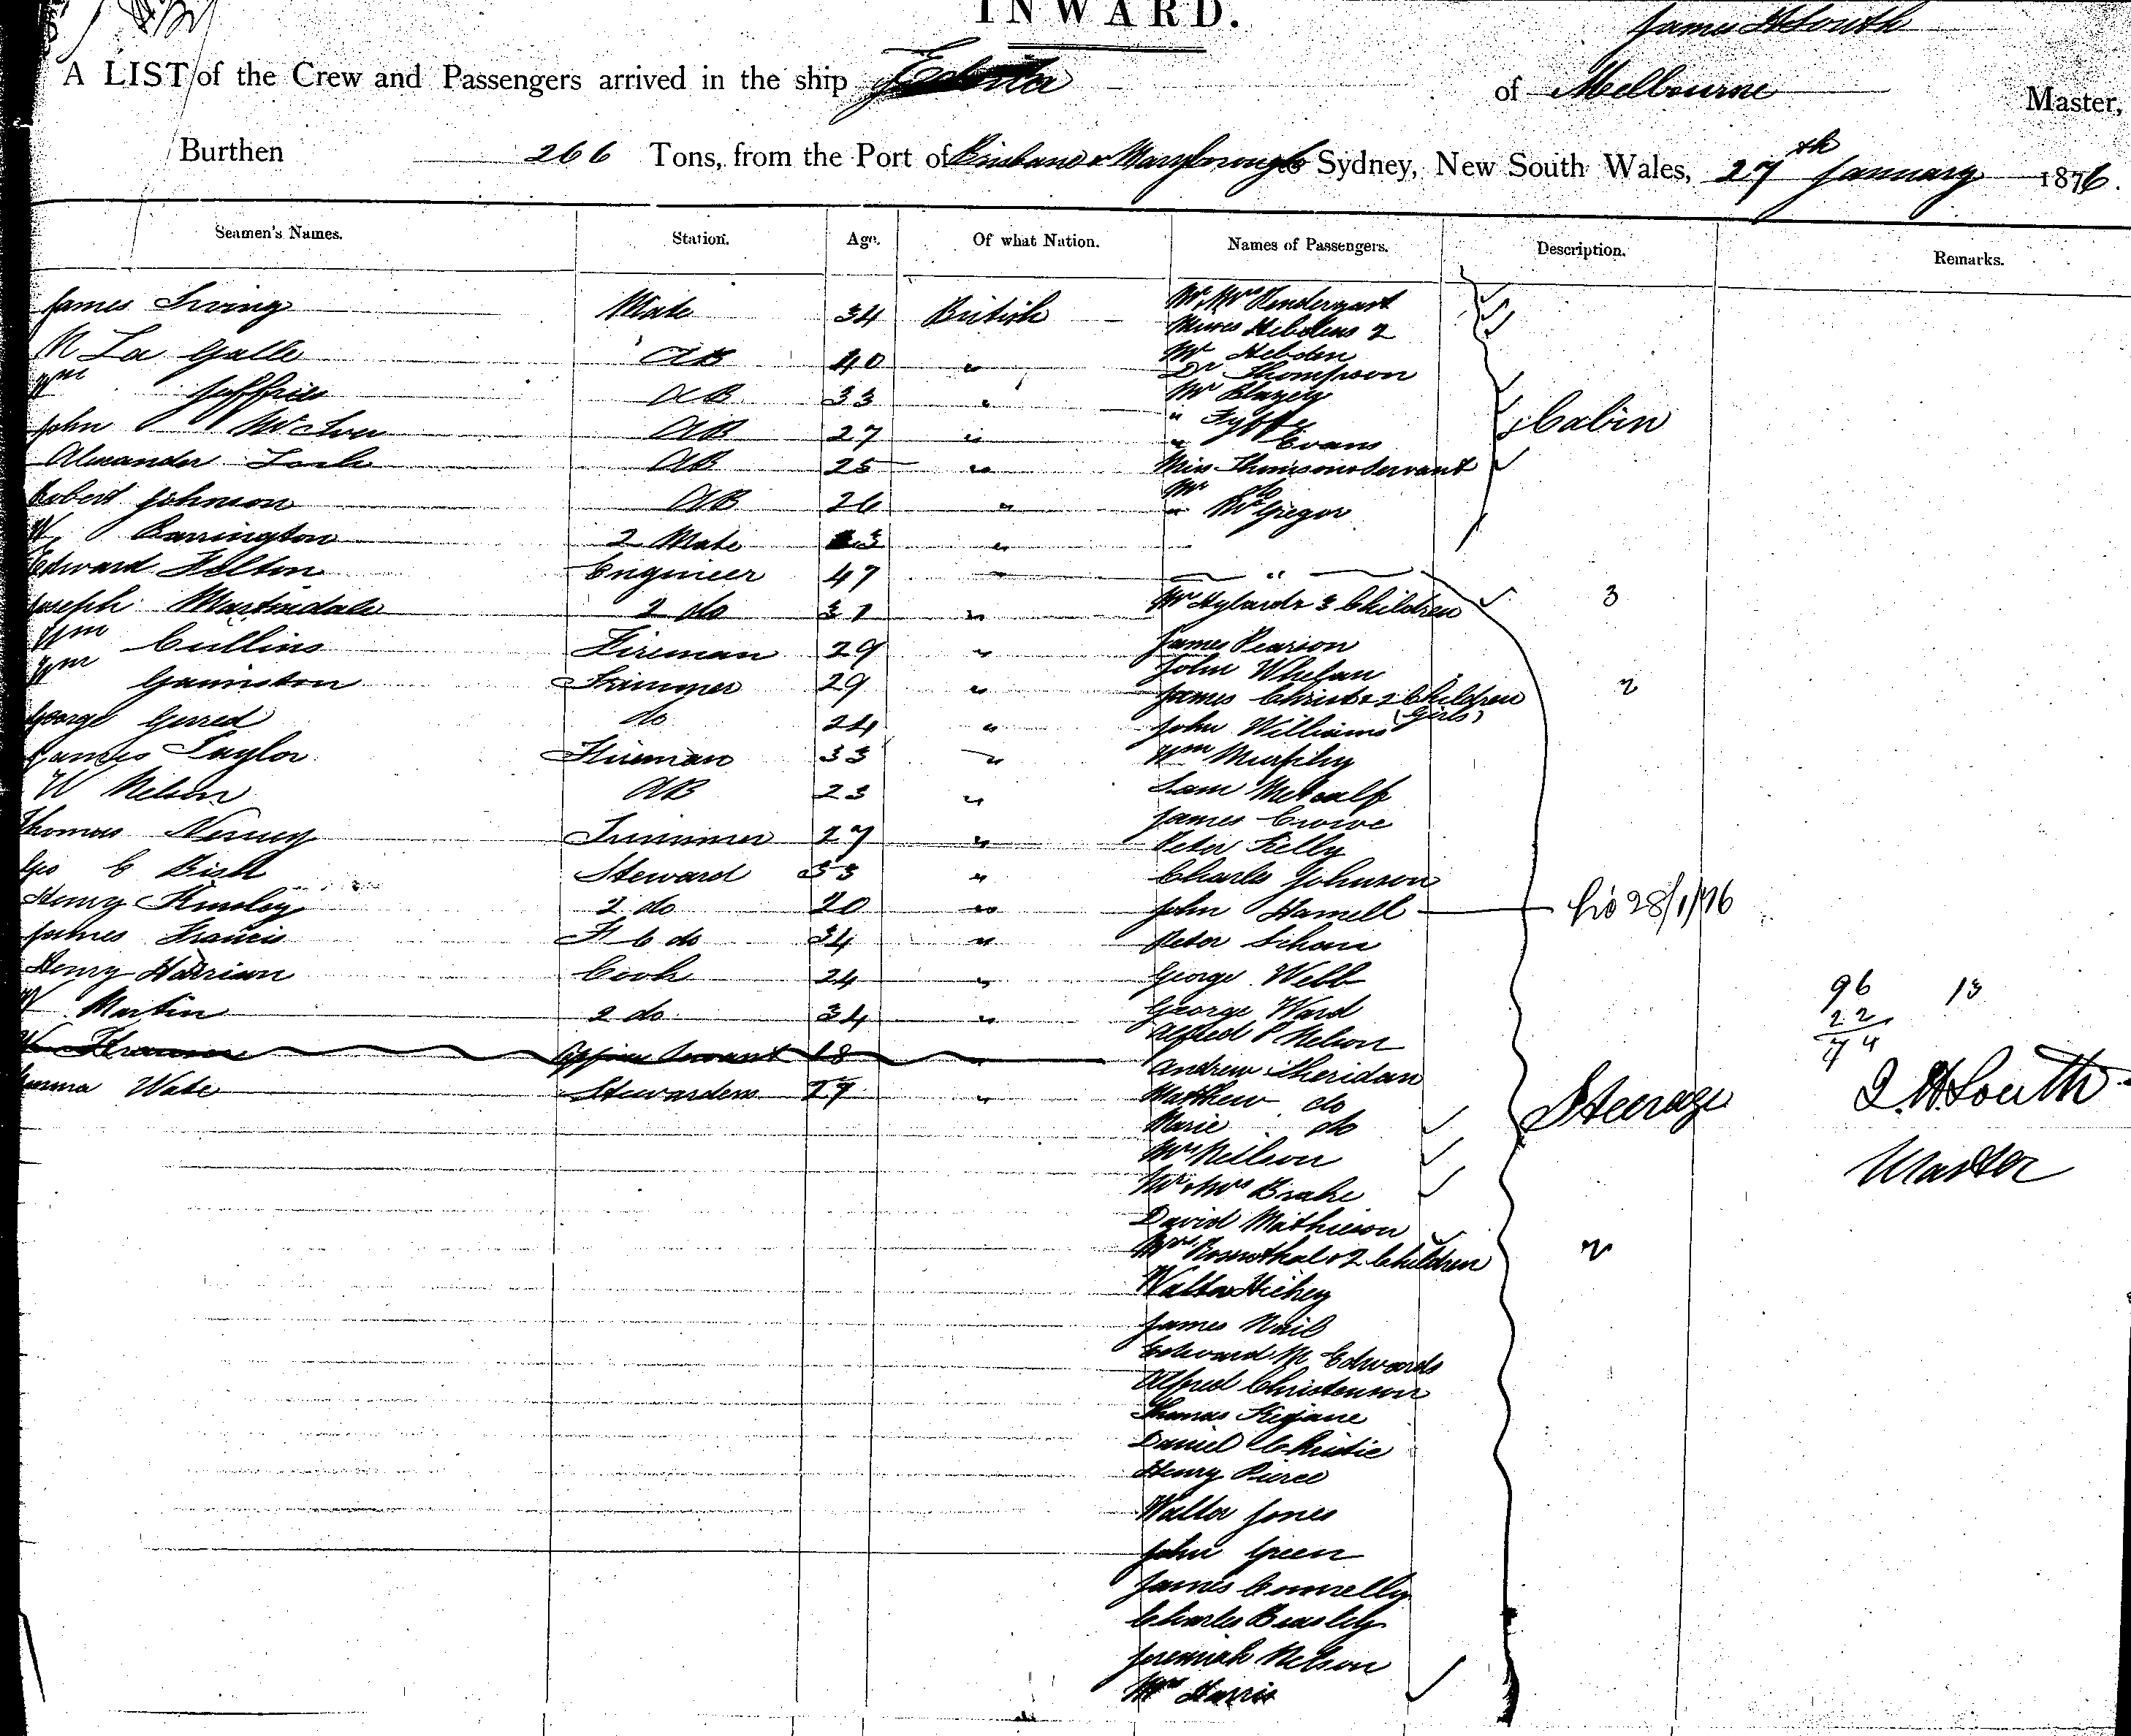 INWARD.
James H South
A LIST of the Crew and Passengers arrived in the ship of Melbourne Master,
Burthen 266 Tons, from the Port of Brisbane & Maryborough to Sydney, New South Wales, 27th January 1876.
Seamen's Names. Station. Age. Of what Nation. Names of Passengers. Description. Remarks.
James Irving Mate 34 British Mr & Mrs Pendergast
Misses Hebdens 2
N La Galle AB 40 " Mr Hebden
Dr Thompson
Wm Jeffries AB 33 " Mr Blazey
John McIver AB 27 " " Fyffe Cabin
" Evans
Alexander AB 25 " Miss Thomson & Servant
Robert Johnson AB 26 " Mr do
" McGregor
W Barrington 2 Mate 3 "
Edward Felton Engineer 47 " "
Joseph Martindale 2 do 31 " 3 Children 3
Wm Cullins Fireman 29 " James Pearson
John Whelan
Wm Trimmer 29 " James Christ & 2 Children 2
(Girls)
George Gerred do 24 " John Williams
James Taylor Fireman 33 " Wm Murphy
W Nelson AB 23 " Sam Metcalf
James Crowe
Thomas Trimmer 27 " Peter Kelly
Geo C Steward 33 " Charles Johnson
Henry Kinsley 2 do 20 " John Hamell 28/1/76
James Francis F C do 34 " Peter
Henry Harrison Cook 24 " George Webb
96 13
W Martin 2 do 34 " George Ward
22
Alfred P Nelson
74
W Servant 18 " Andrew Sheridan
J. H. South
Emma Wate Stewardess 27 " Matthew do Steerage
Marie do
Mrs Neilson
Master
Mr & Mrs Brake
David Mathieson
Mrs Rosenthal & 2 Children 2
Walter Hickey
James Nail
Edward M Edwards
Alfred Christenson
Thomas
Daniel Christie
Henry Pierce
Walter Jones
John Green
James Connelly
Charles Beasley
Jeremiah Nelson
Mrs Harris